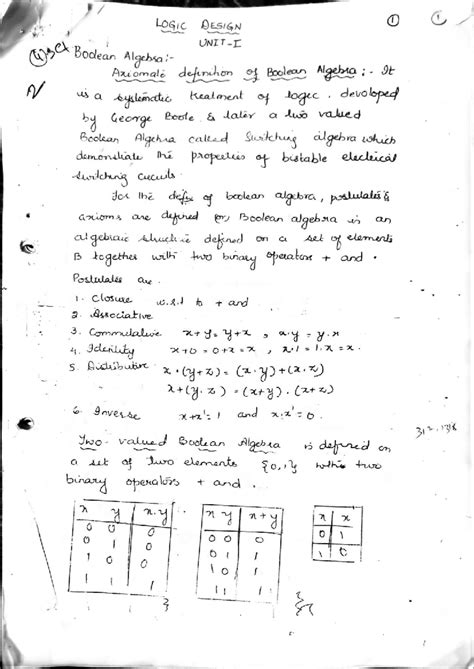 LOGIC DESIGN
UNIT-I
1
Boolean Algebra:-
Axiomatic definition of Boolean Algebra:- It
is a systematic treatment of logic, developed
by George Boole, & later a two valued
Boolean Algebra called Switching algebra which
demonstrate the properties of bistable electrical
switching circuits.
For the defn of boolean algebra, postulates &
axioms are defined (or) Boolean algebra is an
algebraic structure defined on a set of elements
B together with two binary operators + and ·
Postulates are
1. Closure w.r.t to + and
2. Associative
3. Commutative x+y=y+x , x.y = y.x
4. Identity x+0=0+x=x , x.1=1.x=x.
5. Distributive x.(y+z)=(x.y)+(x.z)
x+(y.z)=(x+y).(x+z)
6. Inverse x+x'=1 and x.x'=0.
Two-valued Boolean Algebra is defined on
a set of two elements {0,1} with two
binary operators + and .
x y x.y
0 0 0
0 1 0
1 0 0
1 1 1
x y x+y
0 0 0
0 1 1
1 0 1
1 1 1
x x
0 1
1 0